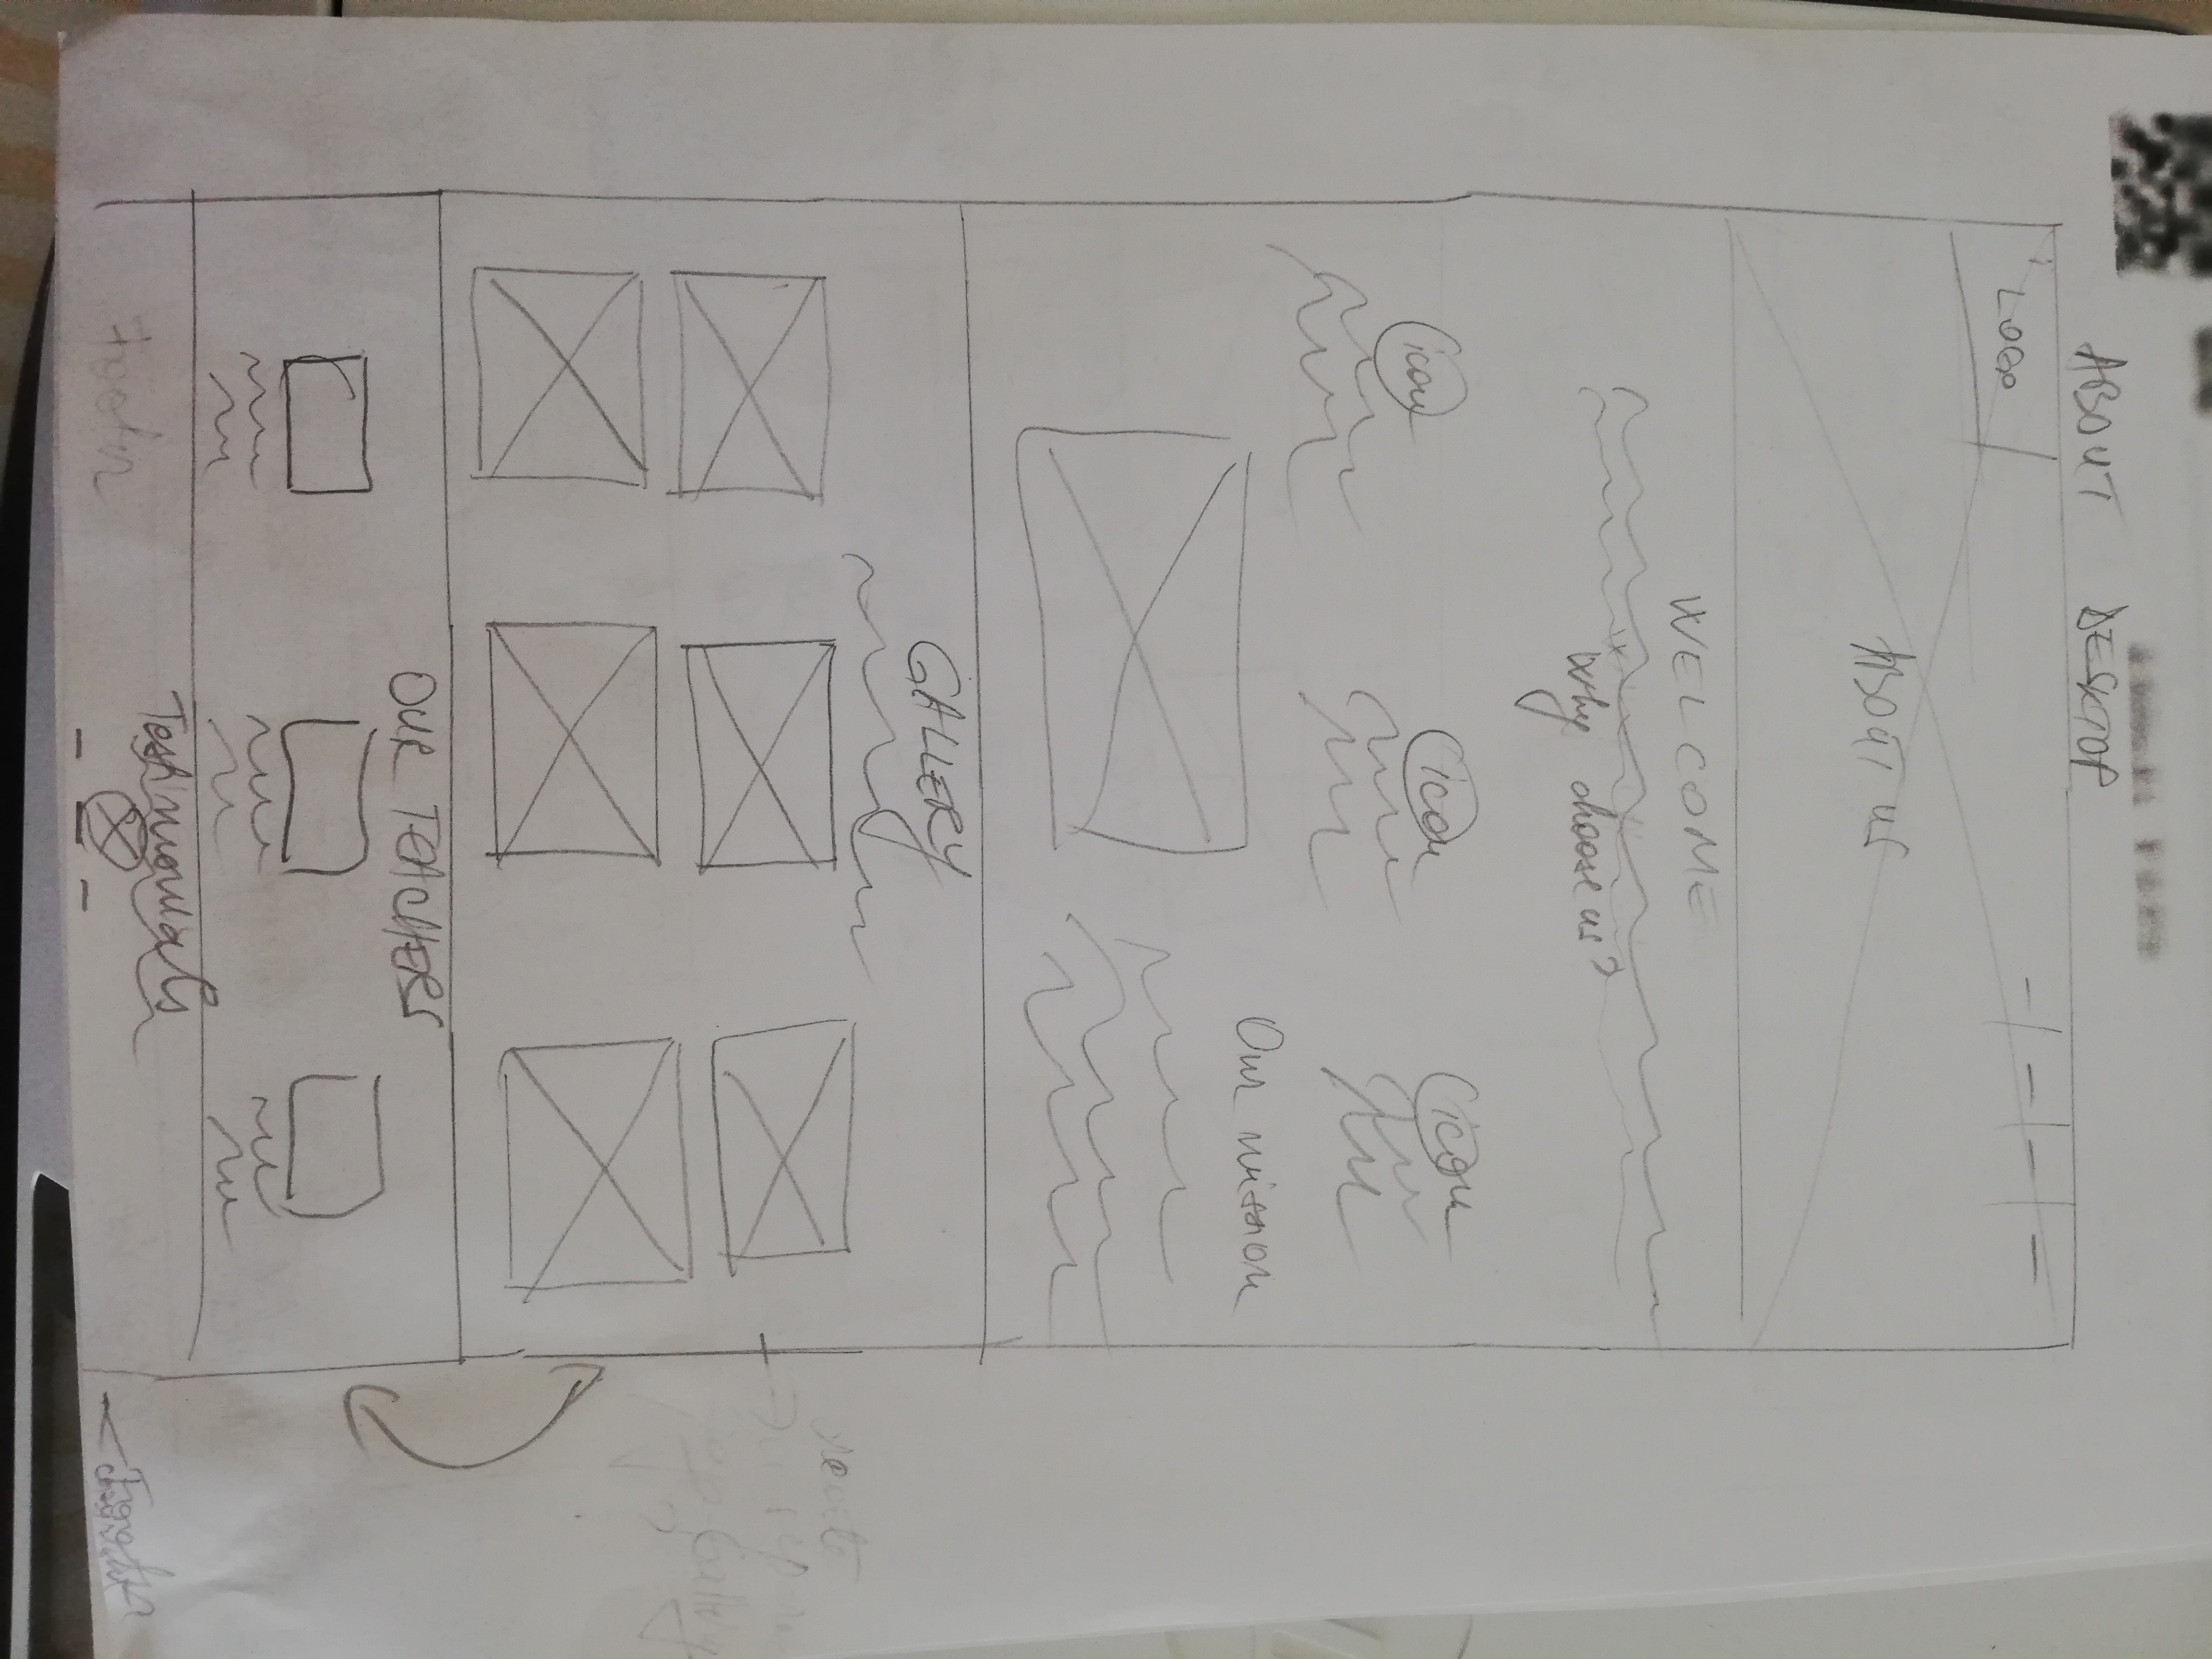 ABOUT DESKTOP
LOGO
ABOUT US
WELCOME
Why choose us?
icon icon icon
Our mission
GALLERY
OUR TEACHERS
Testimonials
Footer